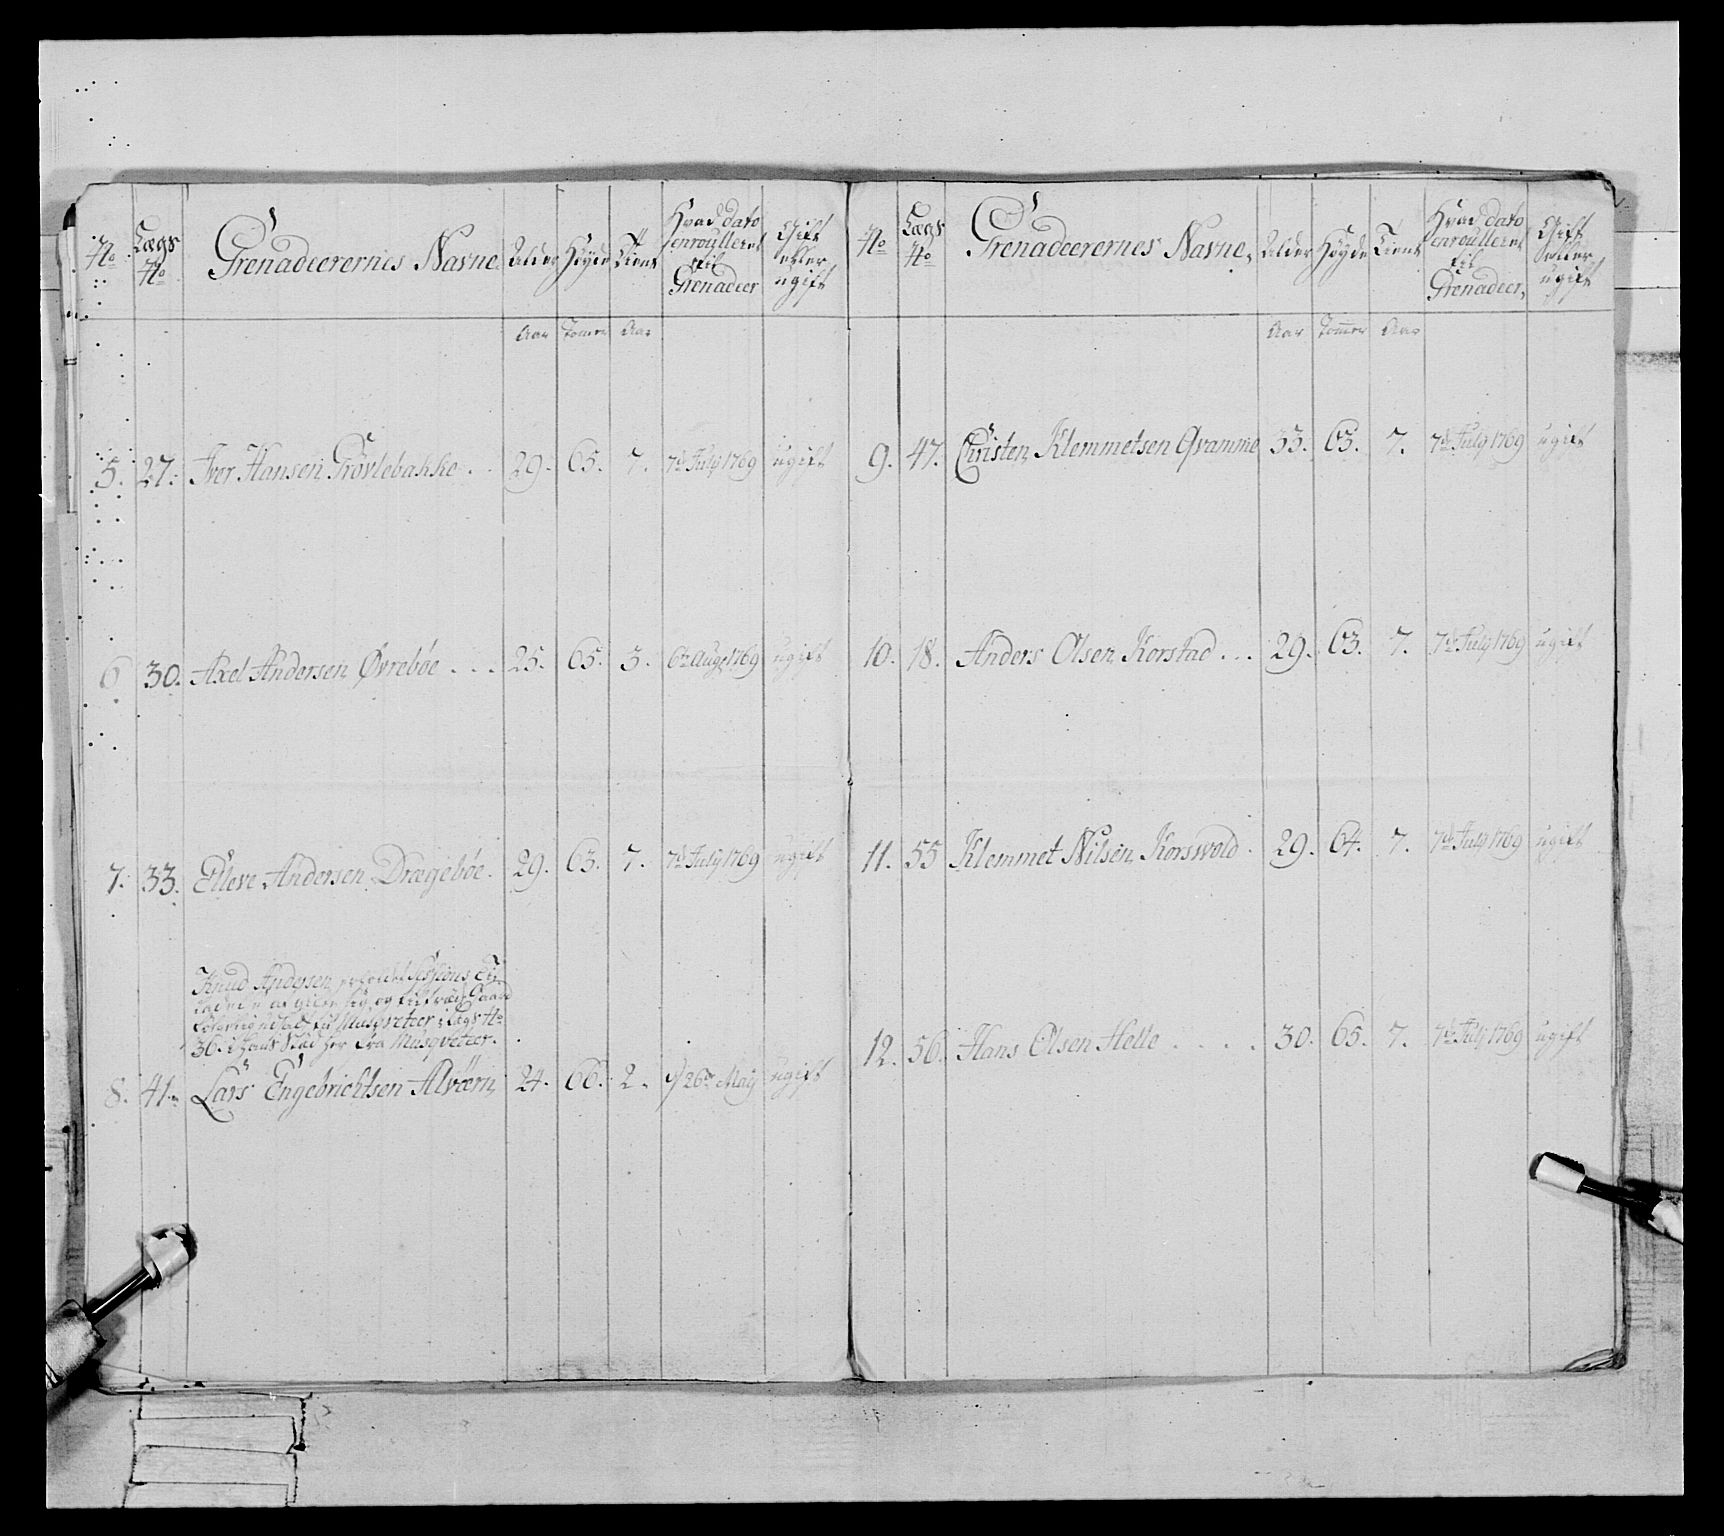 No Lægs No Grenadeerernes Navne Alder Höyde Tient Hvad dato enroulleret til Grenadeer Gift eller ugift
Aar Tomer Aar
5. 27. Iver Hansen Trövlebakke . . 29. 65. 7. 7de July 1769 ugift
6. 30. Axel Andersen Övreböe . . . 25. 65. 3. 6te Aug: 1769 ugift
7. 33. Elleve Andersen Drægeböe. 29. 63. 7. 7de July 1769 ugift
Knud Andersen Sessions
at og Gaard
til Musqveteer i Lægs No
36. i hans Stæd her fra Musqveteer.
8. 41. Lars Engebrichtsen Alværn 24. 66. 2. 26de May ugift
No Lægs No Grenadeerernes Navne. Alder Höyde Tient Hvad dato enroulleret til Grenadeer, Gift eller ugift
Aar Tommer Aar
9. 47. Christen Klemmetsen Qvamme 33. 63. 7. 7de July 1769 ugift
10. 18. Anders Olsen Korstad . . . 29. 63. 7. 7de July 1769 ugift
11. 55 Klemmet Nilsen Korsvold. 29. 64. 7. 7de July 1769 ugift
12. 56. Hans Olsen Helle . . . . 30. 65. 7. 7de July 1769 ugift